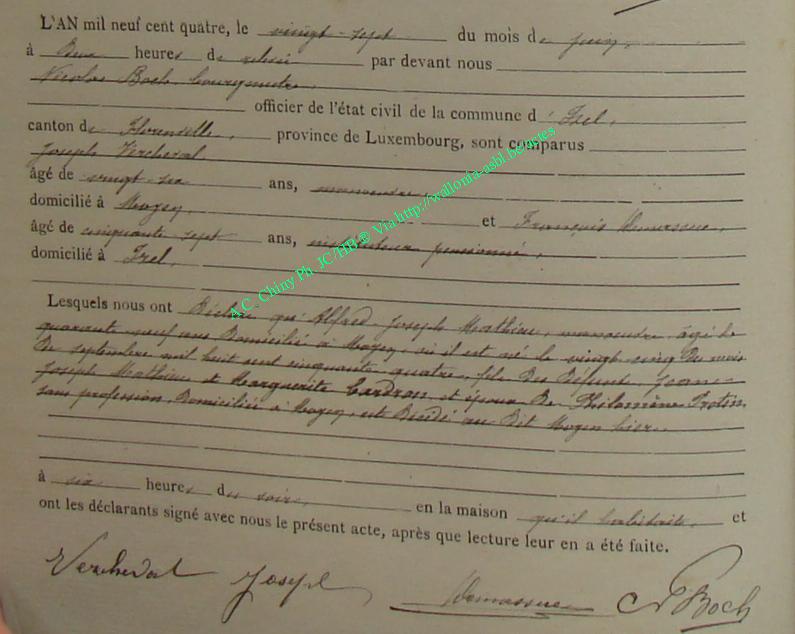 L'AN mil neuf cent quatre, le vingt-sept du mois de juin,
à heures de relevée par devant nous
Nicolas Boch bourgmestre,
officier de l'état civil de la commune d' Izel,
canton de Florenville, province de Luxembourg, sont comparus
Joseph Vercheval
âgé de vingt-six ans, manœuvre,
domicilié à Moyen, et François
âgé de cinquante-sept ans, instituteur pensionné,
domicilié à Izel,
Lesquels nous ont déclaré qu'Alfred-Joseph Mathieu, manœuvre, âgé de
quarante neuf ans domicilié à Moyen, où il est né le vingt cinq du mois
de septembre mil huit cent cinquante quatre, fils des défunts Jean-
Joseph Mathieu et Marguerite Cardron, et époux de Philomène Frotin,
sans profession, domiciliée à Moyen, est décédé au dit Moyen hier,
à six heures du soir, en la maison qu'il habitait, et
ont les déclarants signé avec nous le présent acte, après que lecture leur en a été faite.
Vercheval Joseph N Boch
A.C. Chiny Ph. JC/HB © Via http://wallonia-asbl.be/actes